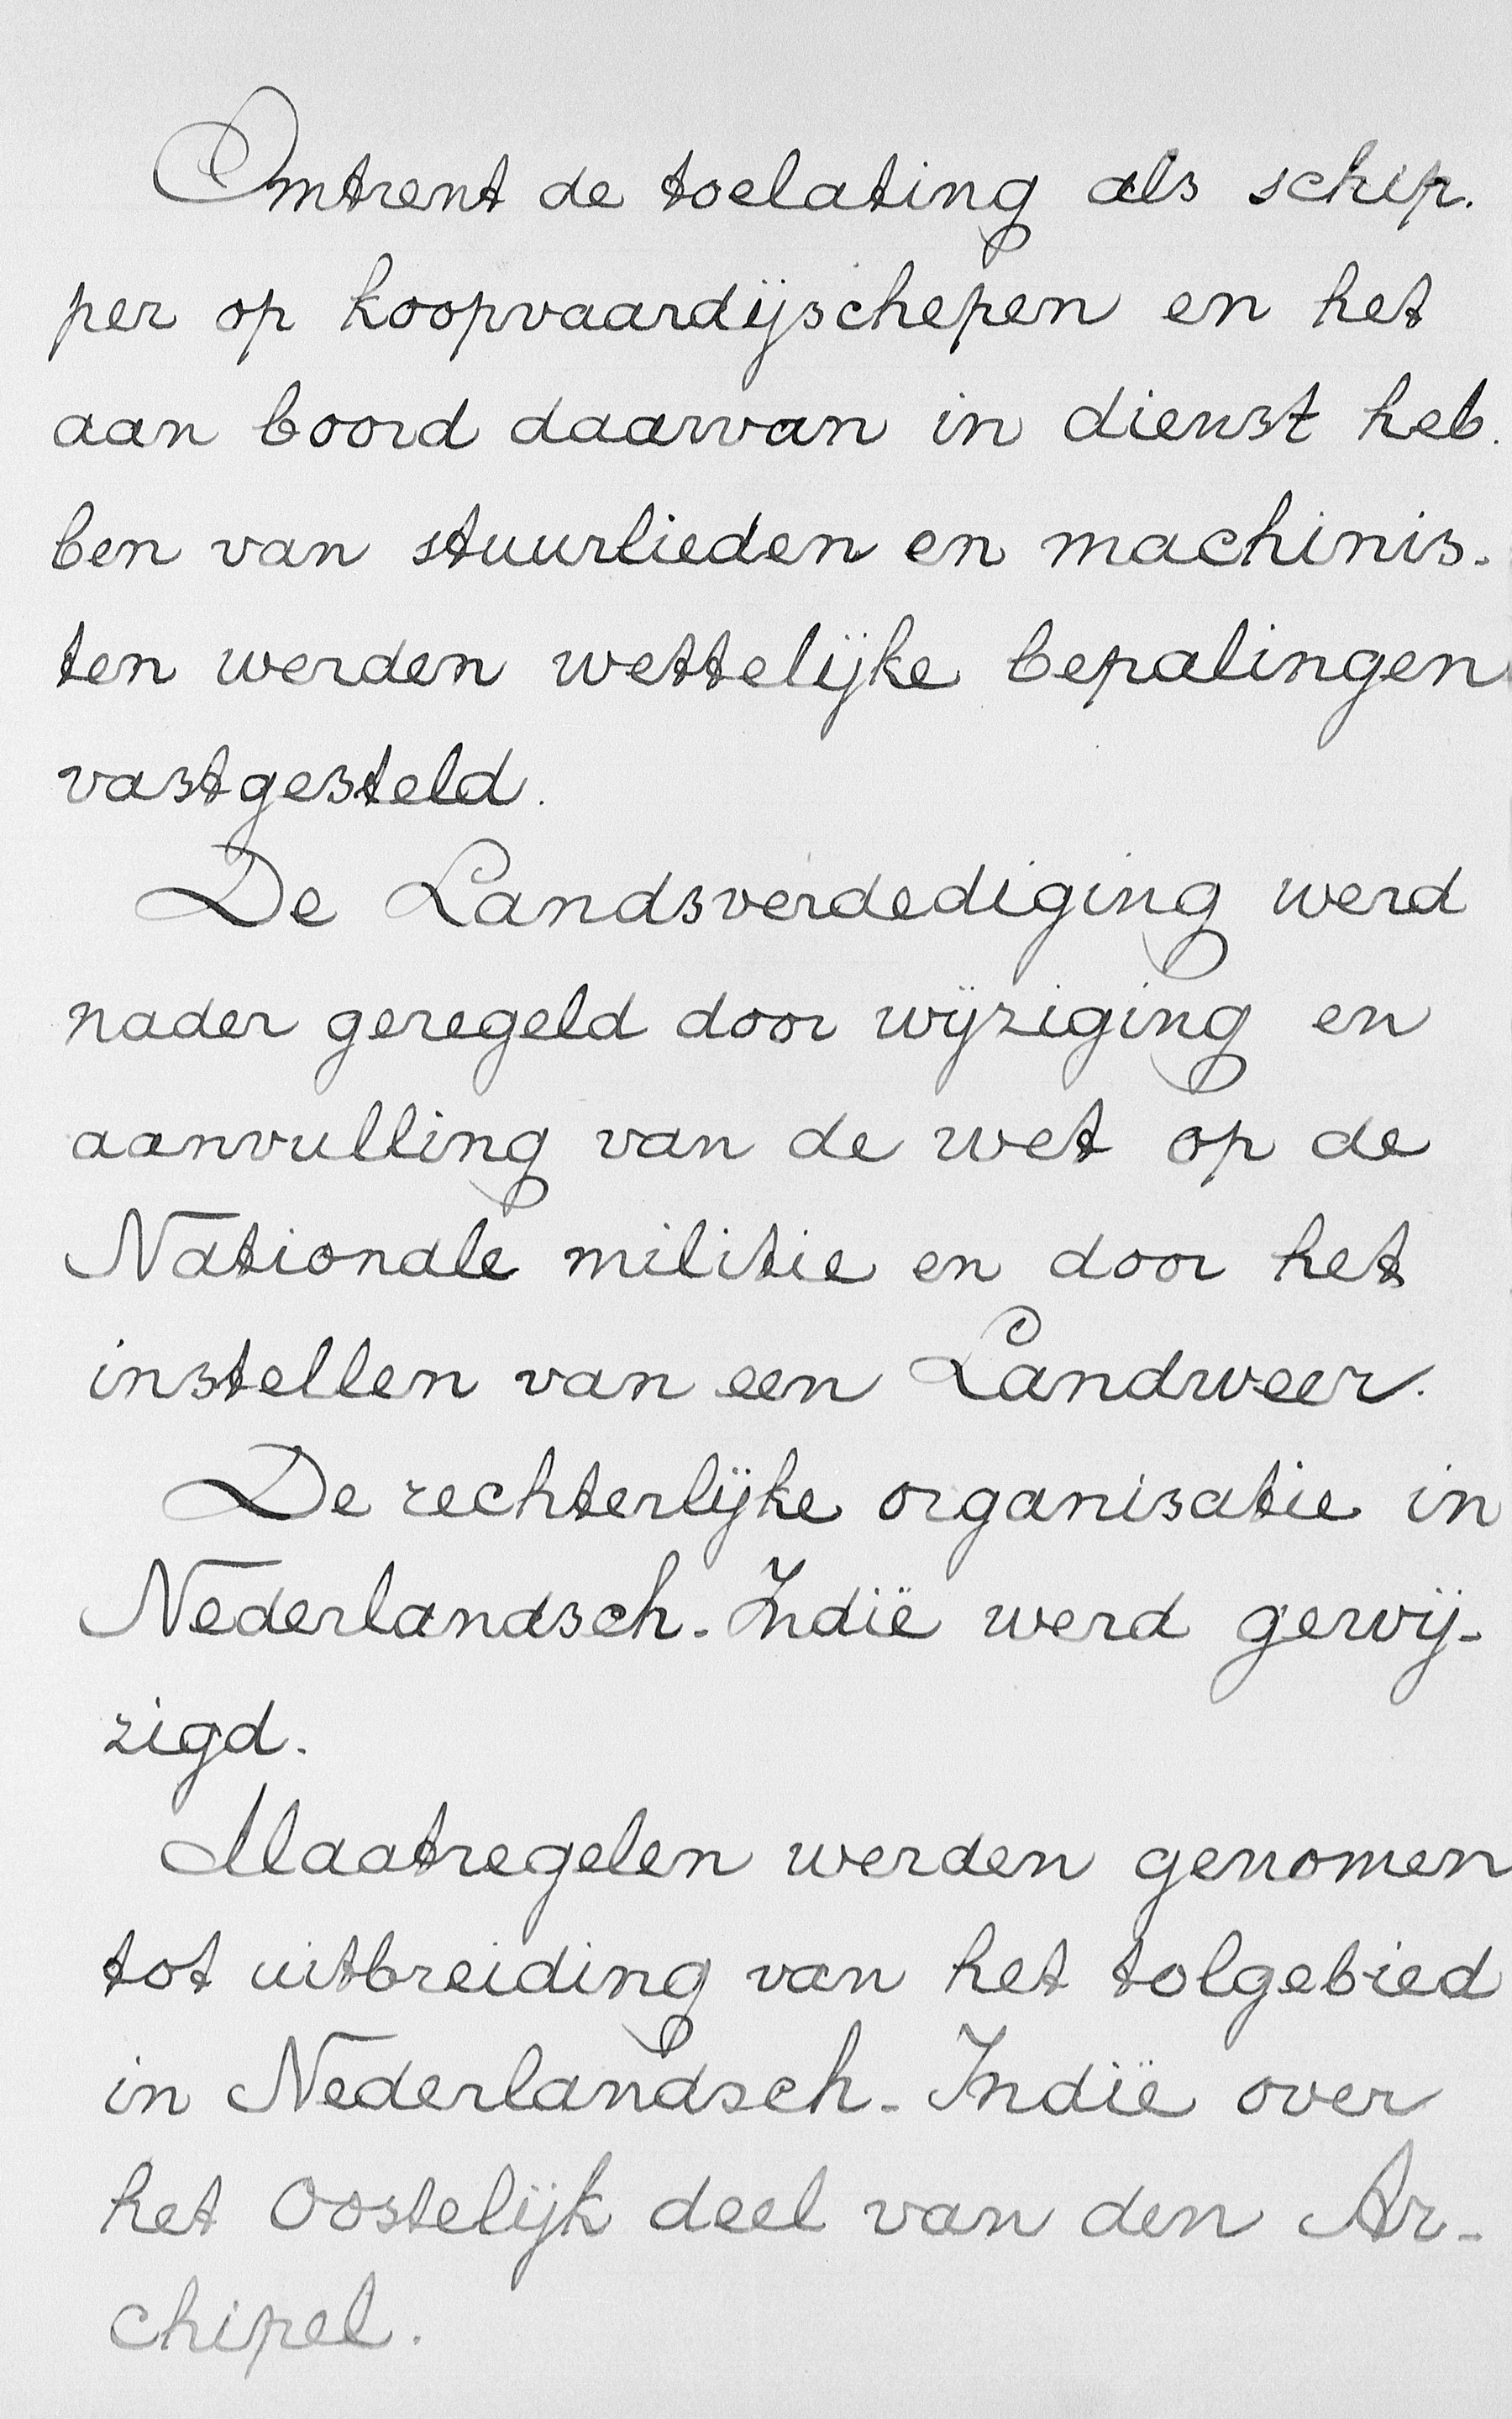 Omtrent de toelating als schip-
per op koopvaardijschepen en het
aan boord daarvan in dienst heb-
ben van stuurlieden en machinis-
ten werden wettelijke bepalingen
vastgesteld.
De Landsverdediging werd
nader geregeld door wijziging en
aanvulling van de wet op de
Nationale militie en door het
instellen van een Landweer.
De rechterlijke organisatie in
Nederlandsch-Indië werd gewij-
zigd.
Maatregelen werden genomen
tot uitbreiding van het tolgebied
in Nederlandsch-Indië over
het Oostelijk deel van den Ar-
chipel.